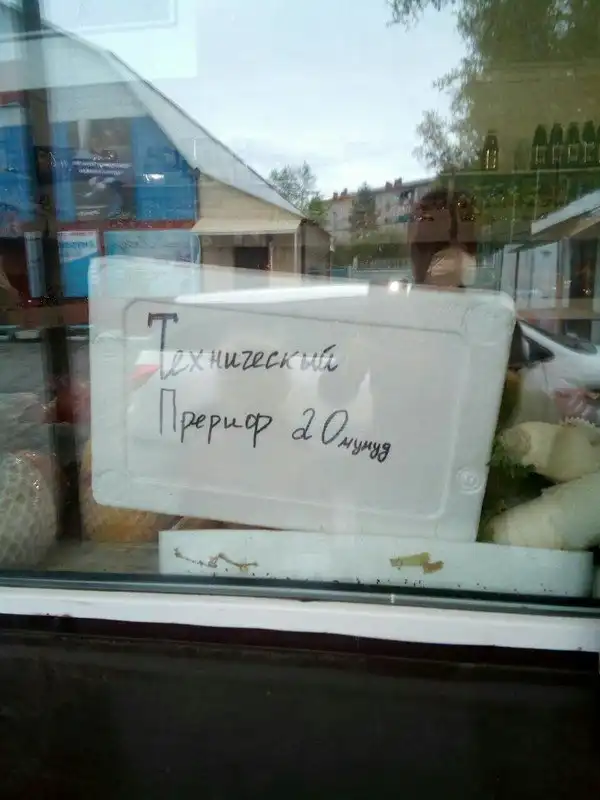 Технический
Прериф 20 мунуд